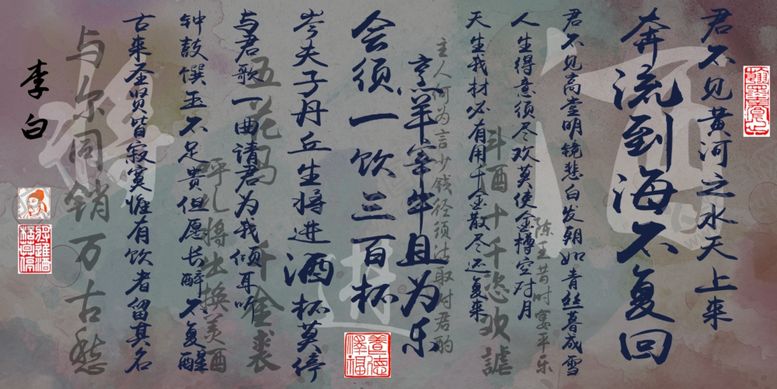 君不见黄河之水天上来
奔流到海不复回
君不见高堂明镜悲白发朝如青丝暮成雪
陈王昔时宴平乐
人生得意须尽欢莫使金樽空对月
斗酒十千恣欢谑
天生我材必有用千金散尽还复来
主人何为言少钱径须沽取对君酌
烹羊宰牛且为乐
会须一饮三百杯
岑夫子丹丘生将进酒杯莫停
五花马千金裘
与君歌一曲请君为我倾耳听
呼儿将出换美酒
钟鼓馔玉不足贵但愿长醉不复醒
古来圣贤皆寂寞惟有饮者留其名
与尔同销万古愁
李白
酒
进
将